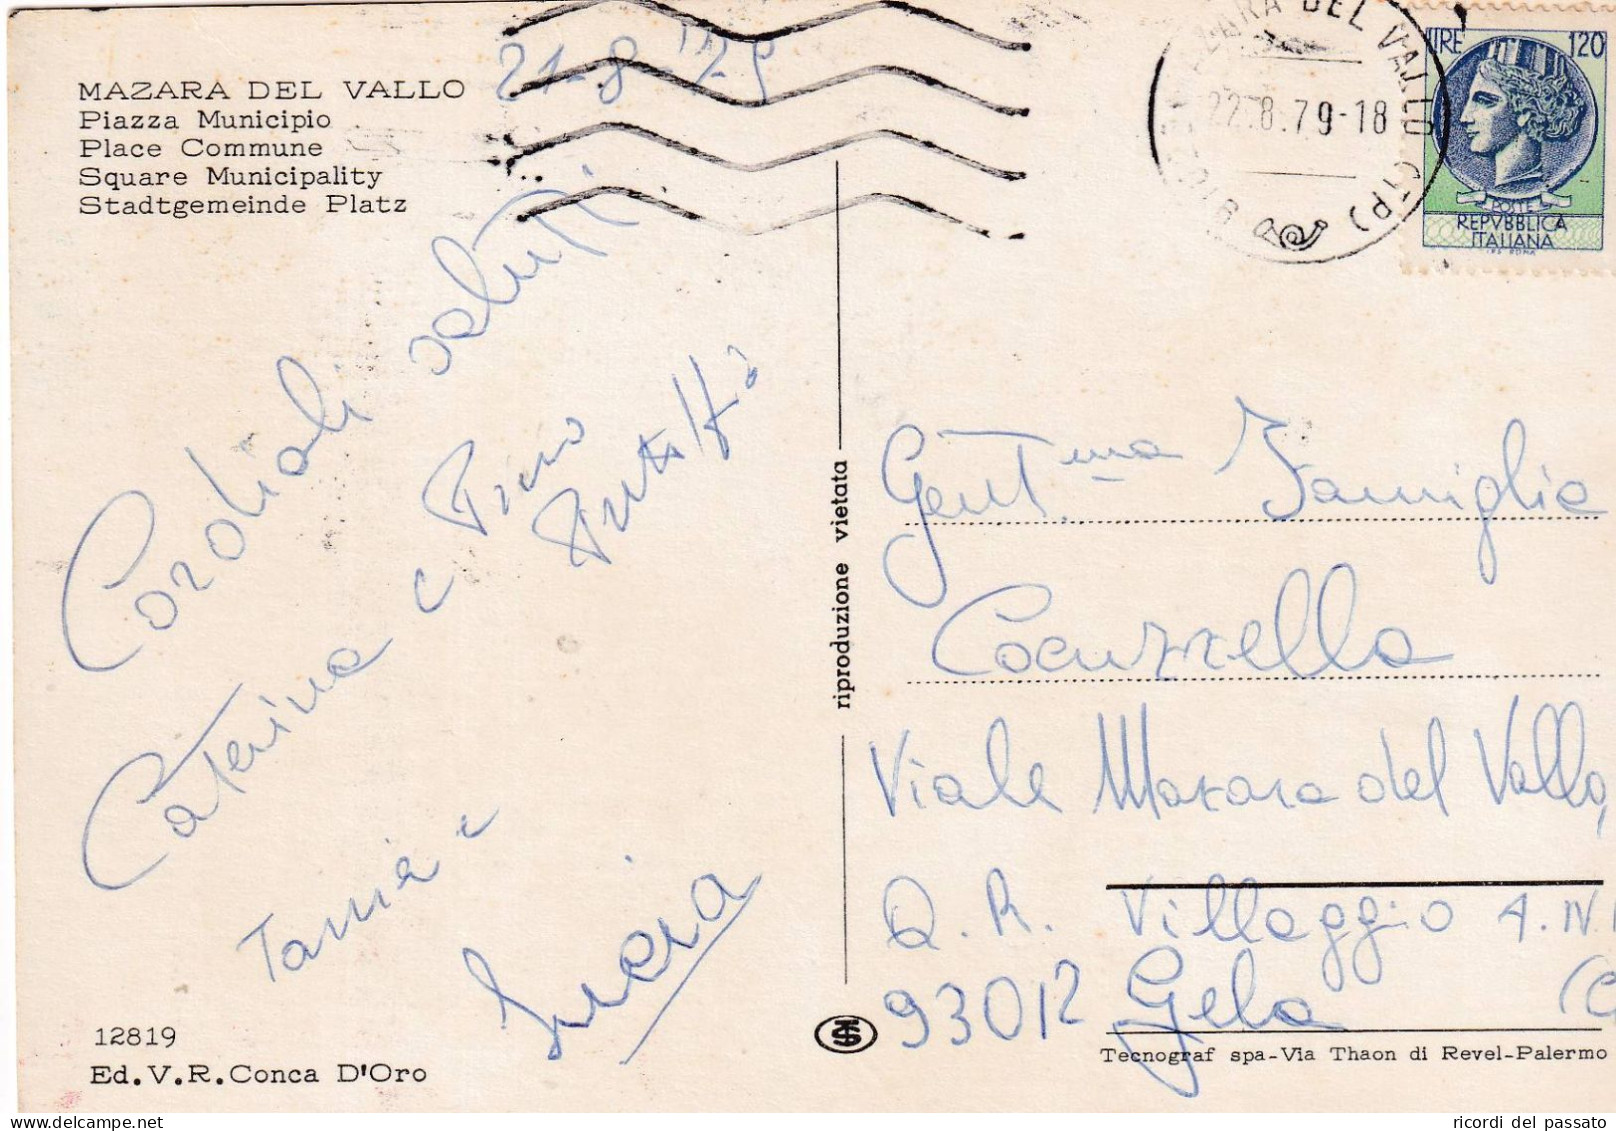 MAZARA DEL VALLO
Piazza Municipio
Place Commune
Square Municipality
Stadtgemeinde Platz
21-8-'79
Cordiali saluti
Caterina e
Tania e
12819
Ed.V.R.Conca D'Oro
riproduzione vietata
ZARA DEL VALLO (TP)
22.8.79-18
LIRE 120
POSTE
REPVBBLICA
ITALIANA
Gent.ma Famiglia
Cocuzzella
Viale Mazara del Vallo,
Q.R. Villaggio A.N.
93012 Gela (C
Tecnograf spa-Via Thaon di Revel-Palermo
ricordi del passato